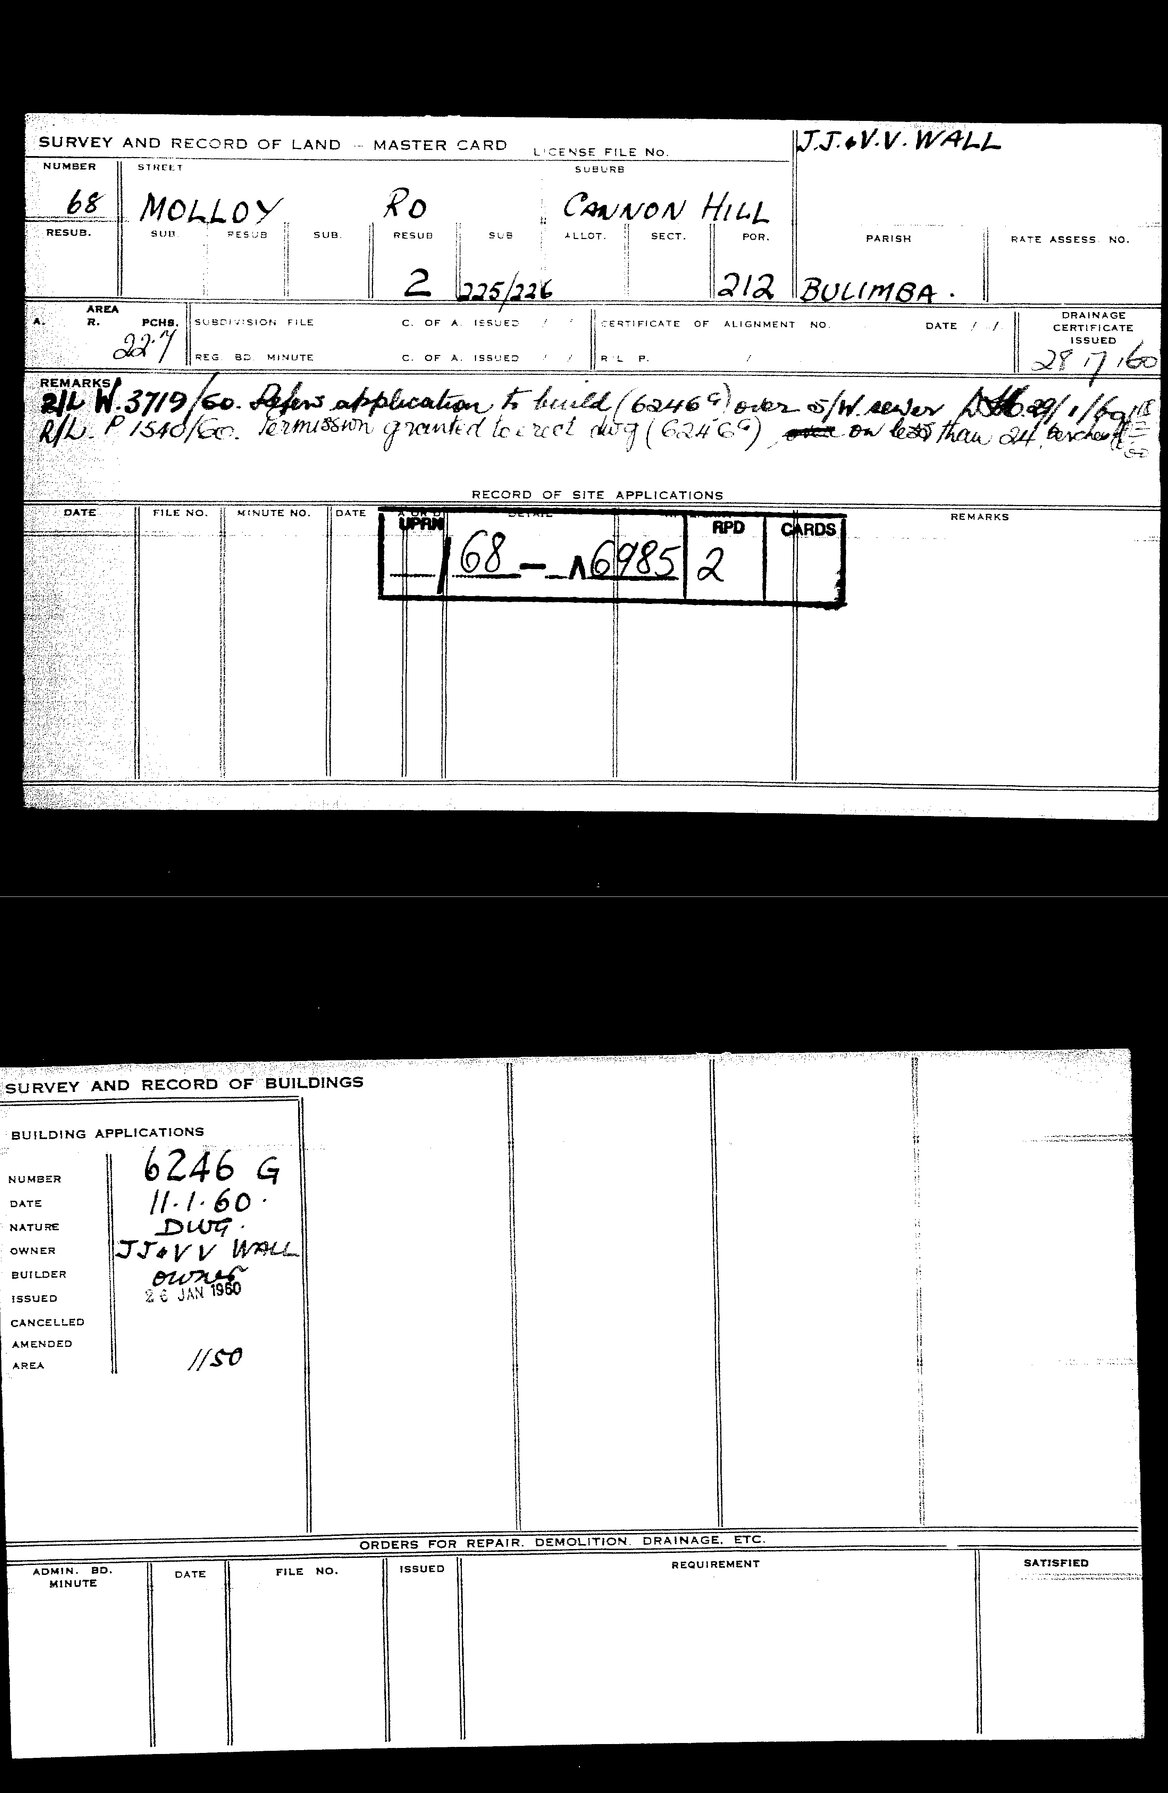 SURVEY AND RECORD OF LAND - MASTER CARD
LICENSE FILE No.
J.J. & V.V. WALL
NUMBER STREET SUBURB
68 MOLLOY RD CANNON HILL
RESUB. SUB. RESUB SUB. RESUB SUB ALLOT. SECT. POR. PARISH RATE ASSESS. NO.
2 225/226 212 BULIMBA.
AREA
A. R. PCHS.
22.7
SUBDIVISION FILE C. OF A. ISSUED / /
REG. BD. MINUTE C. OF A. ISSUED / /
CERTIFICATE OF ALIGNMENT NO. DATE / /
R L P. /
DRAINAGE CERTIFICATE ISSUED
28/7/60
REMARKS
R/L W.3719/60. Refers application to build (6246G) over S/W. sewer 29/1/60
R/L. P 1540/60. Permission granted to erect dwg (6246G) on less than 24 perches
RECORD OF SITE APPLICATIONS
DATE FILE NO. MINUTE NO. DATE A OR D DETAIL REMARKS
UPRN RPD CARDS
68 - 6985 2
SURVEY AND RECORD OF BUILDINGS
BUILDING APPLICATIONS
NUMBER 6246 G
DATE 11.1.60.
NATURE DWG.
OWNER JJ & VV WALL
BUILDER owner
ISSUED 26 JAN 1960
CANCELLED
AMENDED
AREA 1150
ORDERS FOR REPAIR. DEMOLITION. DRAINAGE, ETC.
ADMIN. BD. MINUTE DATE FILE NO. ISSUED REQUIREMENT SATISFIED